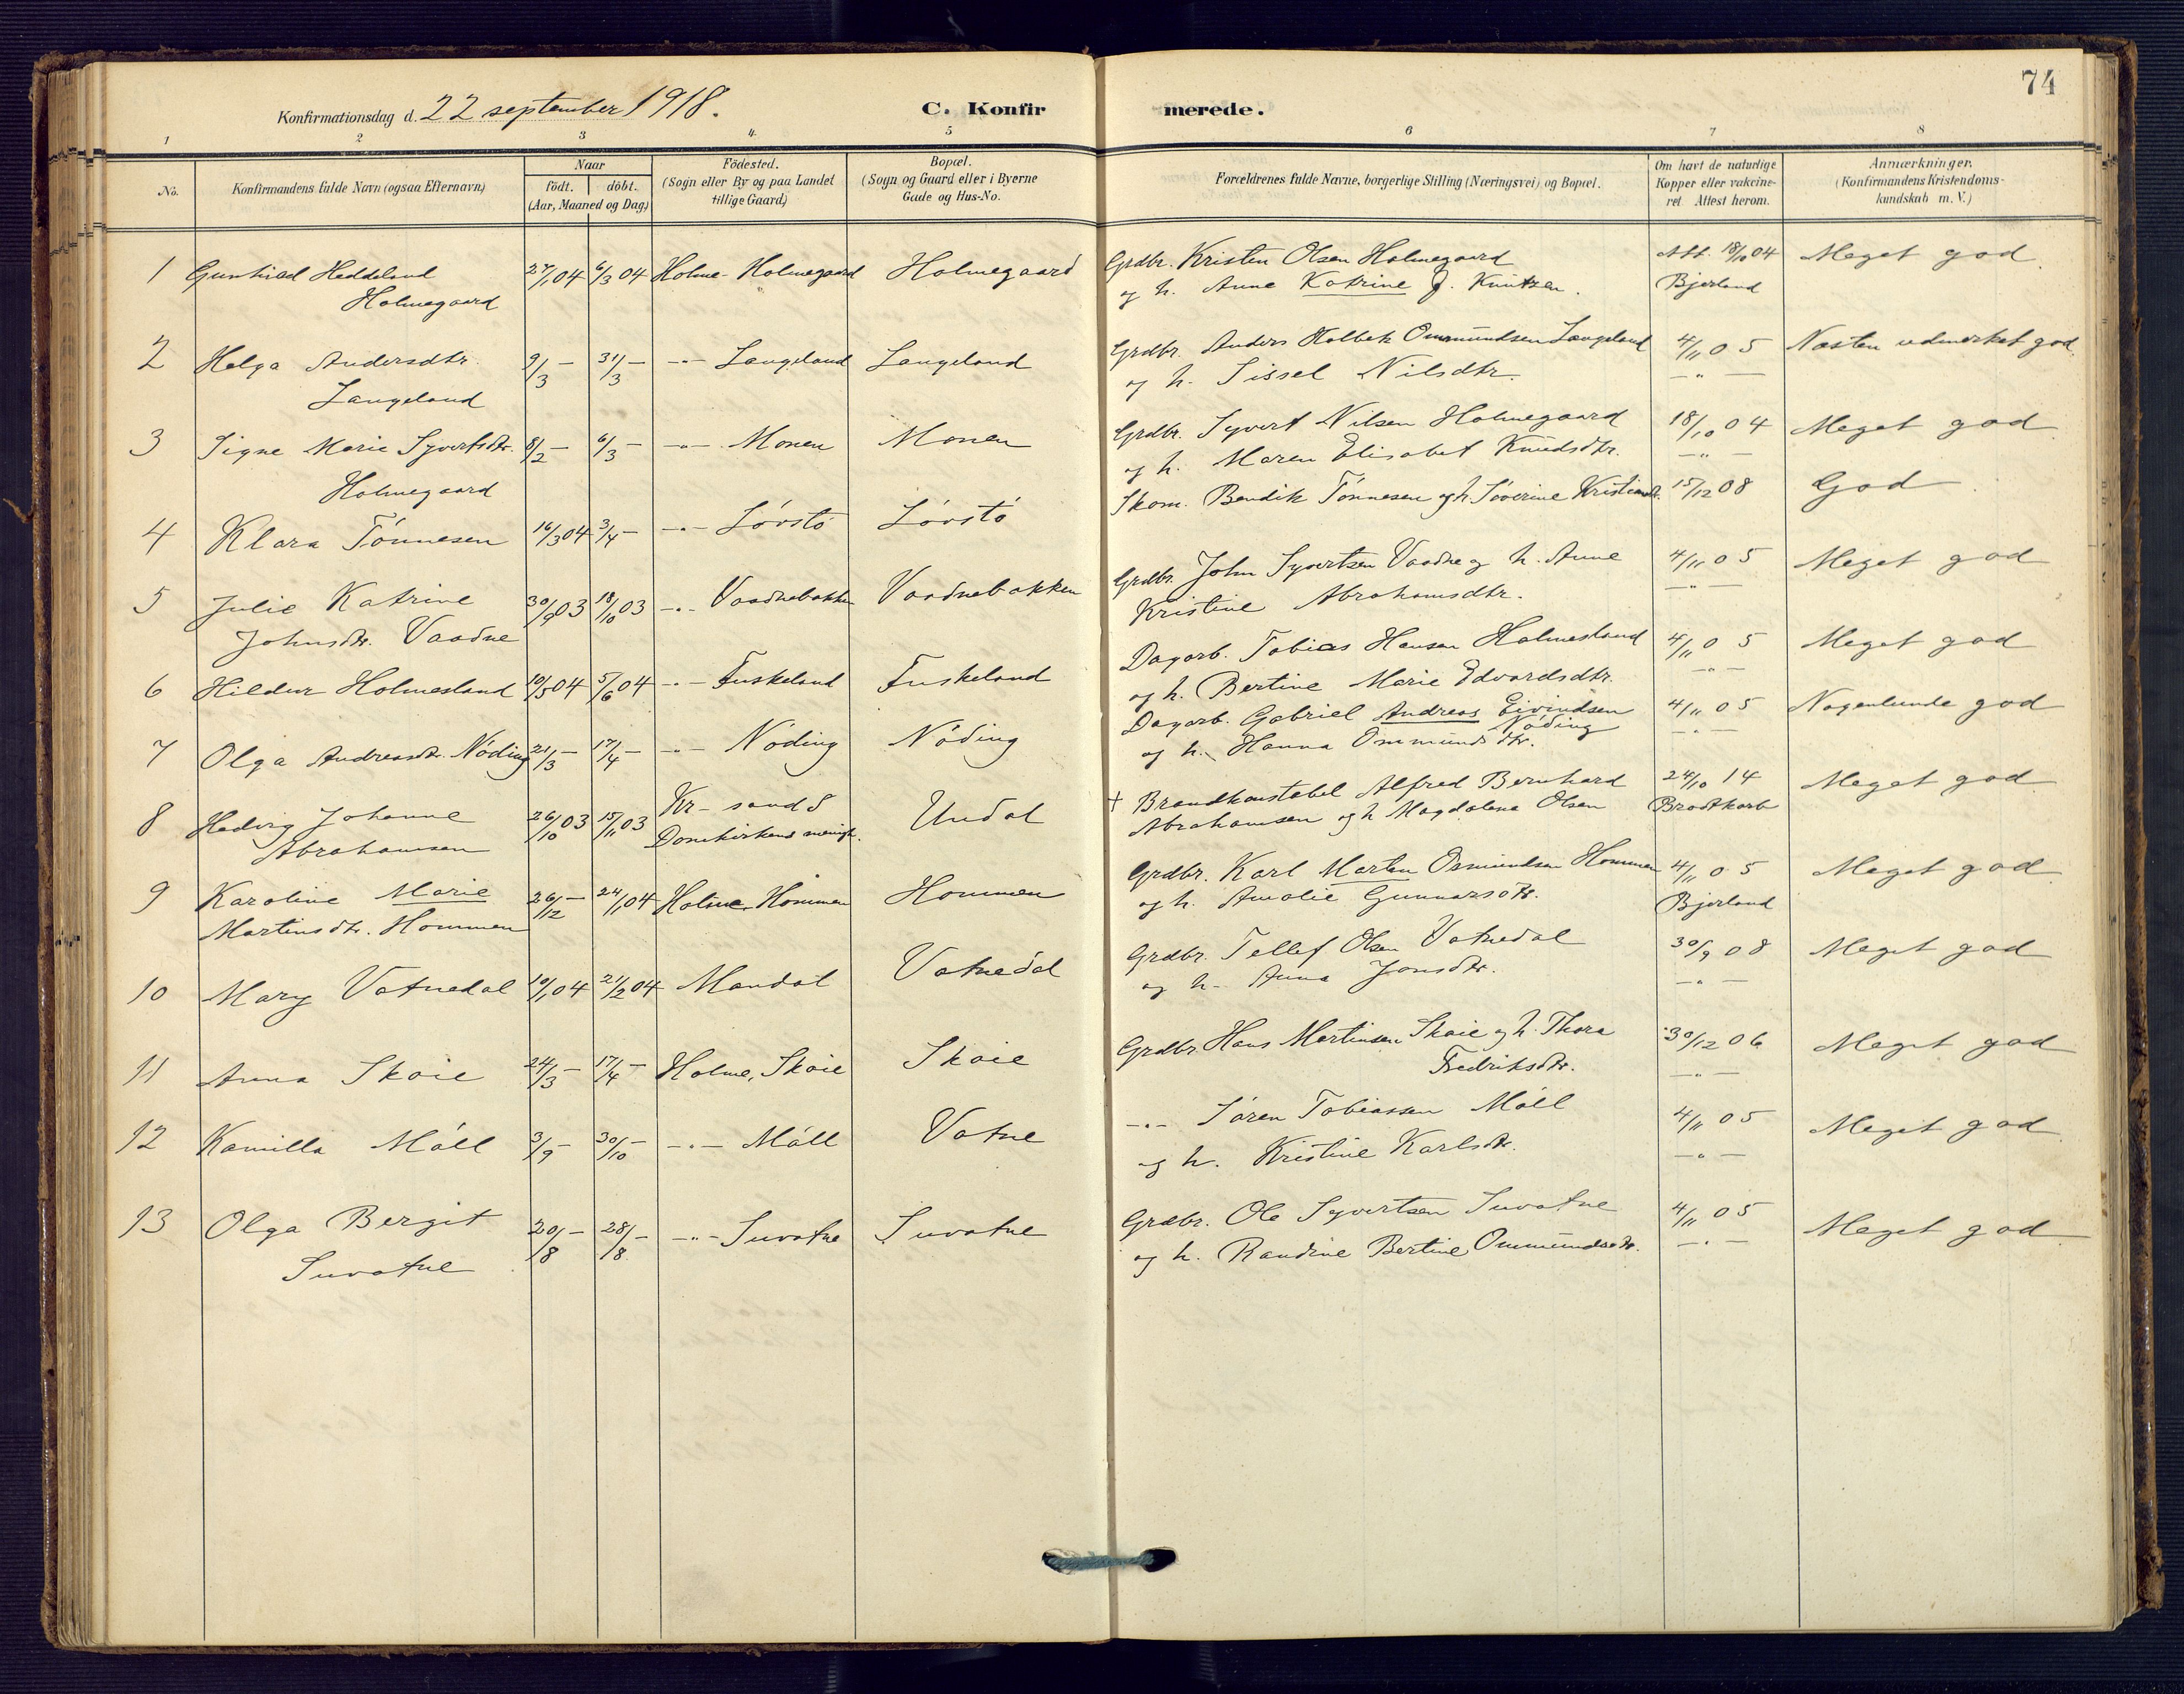 74
Konfirmationsdag d. 22 september 1918.
C. Konfirmerede.
1 2 3 4 5 6 7 8
No.
Konfirmandens fulde Navn (ogsaa Efternavn)
Naar
födt. döbt.
(Aar, Maaned og Dag)
Födested.
(Sogn eller By og paa Landet
tillige Gaard)
Bopæl.
(Sogn og Gaard eller i Byerne
Gade og Hus-No.
Forældrenes fulde Navne, borgerlige Stilling (Næringsvei) og Bopæl.
Om havt de naturlige
Kopper eller vakcine-
ret Attest herom.
Anmærkninger.
(Konfirmandens Kristendoms-
kundskab m. V.)
1 Gunhild Heddeland 27/1 04 6/3 04 Holme- Holmegaard Holmegaard Grdbr. Kristen Olsen Holmegaard Att. 18/10 04 Meget god
Holmegaard og h. Anne Katrine J. Knutzen. Bjerland
2 Helga Andersdtr. 9/3 - 31/3 - -"- Langeland Langeland Grdbr. Anders Holbek Ommundsen Langeland 4/11 05 Næsten udmerket god.
Langeland og h. Sissel Nilsdtr. -"-
3 Signe Marie Syvertsdtr. 8/2 - 6/3 - -"- Monen Monen Grdbr. Syvert Nilsen Holmegaard 18/10 04 Meget god
Holmegaard og h. Maren Elisabet Knudsdtr. -"-
4 Klara Tönnesen 16/3 04 3/4 - -"- Lövstö Lövstö Skom. Bendik Tönnesen og h. Söverine Kristiansdtr. 15/12 08 God
5 Julie Katrine 30/9 03 18/10 03 -"- Vaadnebakken Vaadnebakken Grdbr. John Syvertsen Vaadne og h. Anne 4/11 05 Meget god
Johnsdtr. Vaadne Kristine Abrahamsdtr. -"-
6 Hildur Holmesland 10/5 04 5/6 04 -"- Fuskeland Fuskeland Dagarb. Tobias Hansen Holmesland 4/11 05 Meget god
og h. Bertine Marie Edvardsdtr. -"-
7 Olga Andreasdtr. Nöding 21/3 - 17/4 - -"- Nöding Nöding Dagarb. Gabriel Andreas Eivindsen 4/11 05 Nogenlunde god
Nöding
og h. Hanna Ommundsdtr. -"-
8 Hedvig Johanne 26/10 03 15/11 03 Kr-sand S Undal + Brandkonstabel Alfred Bernhard 24/10 14 Meget god
Abrahamsen Domkirkens menigh. Abrahamsen og h Magdalena Olsen Brodtkorb
9 Karoline Marie 26/12 - 24/1 04 Holme, Hommen Hommen Grdbr. Karl Martin Osmundsen Hommen 4/11 05 Meget god
Martinsdtr. Hommen og h. Amalie Gunnarsdtr. Bjerland
10 Mary Vatnedal 10/1 04 21/2 04 Mandal Vatnedal Grdbr. Tellef Olsen Vatnedal 30/9 08 Meget god
og h. Anna Jonsdtr. -"-
11 Anna Skoie 24/3 - 17/4 - Holme, Skoie Skoie Grdbr. Hans Martinsen Skoie og h. Thora 30/12 06 Meget god
Fredriksdtr. -"-
12 Kamilla Möll 3/9 - 30/10 - -"- Möll Vatne -"- Sören Tobiassen Möll 4/11 05 Meget god
og h. Kristine Karlsdtr. -"-
13 Olga Bergit 20/8 - 28/8 - -"- Suvatne Suvatne Grdbr. Ole Syvertsen Suvatne 4/11 05 Meget god
Suvatne og h. Randine Bertine Ommundsdtr. -"-